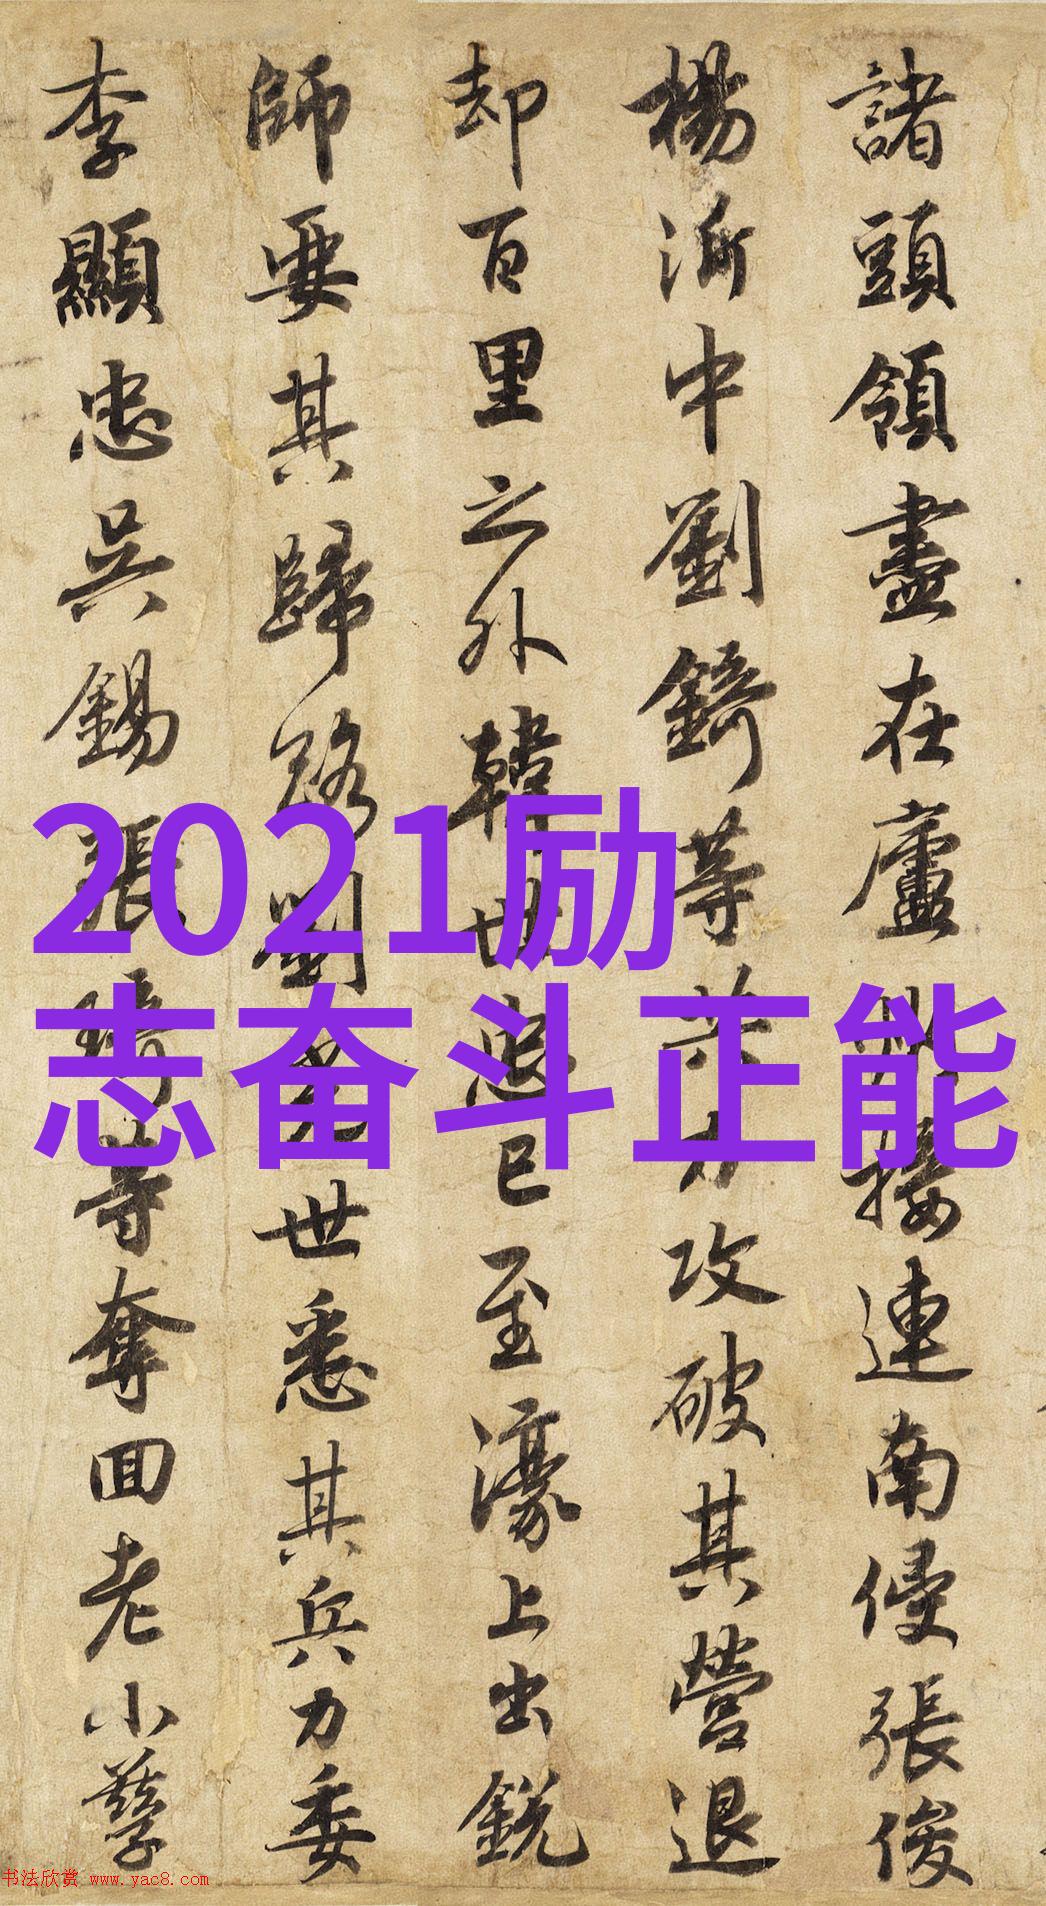 諸頭領盡在廬州接連南侵張俊
楊沂中劉錡等共力攻破其營退
却百里之外韓世忠已至濠上出銳
師要其歸路劉光世悉其兵力委
李顯忠吳錫張琦等奪回老小孳
2021励
志奋斗正能
书法欣赏 www.yac8.com